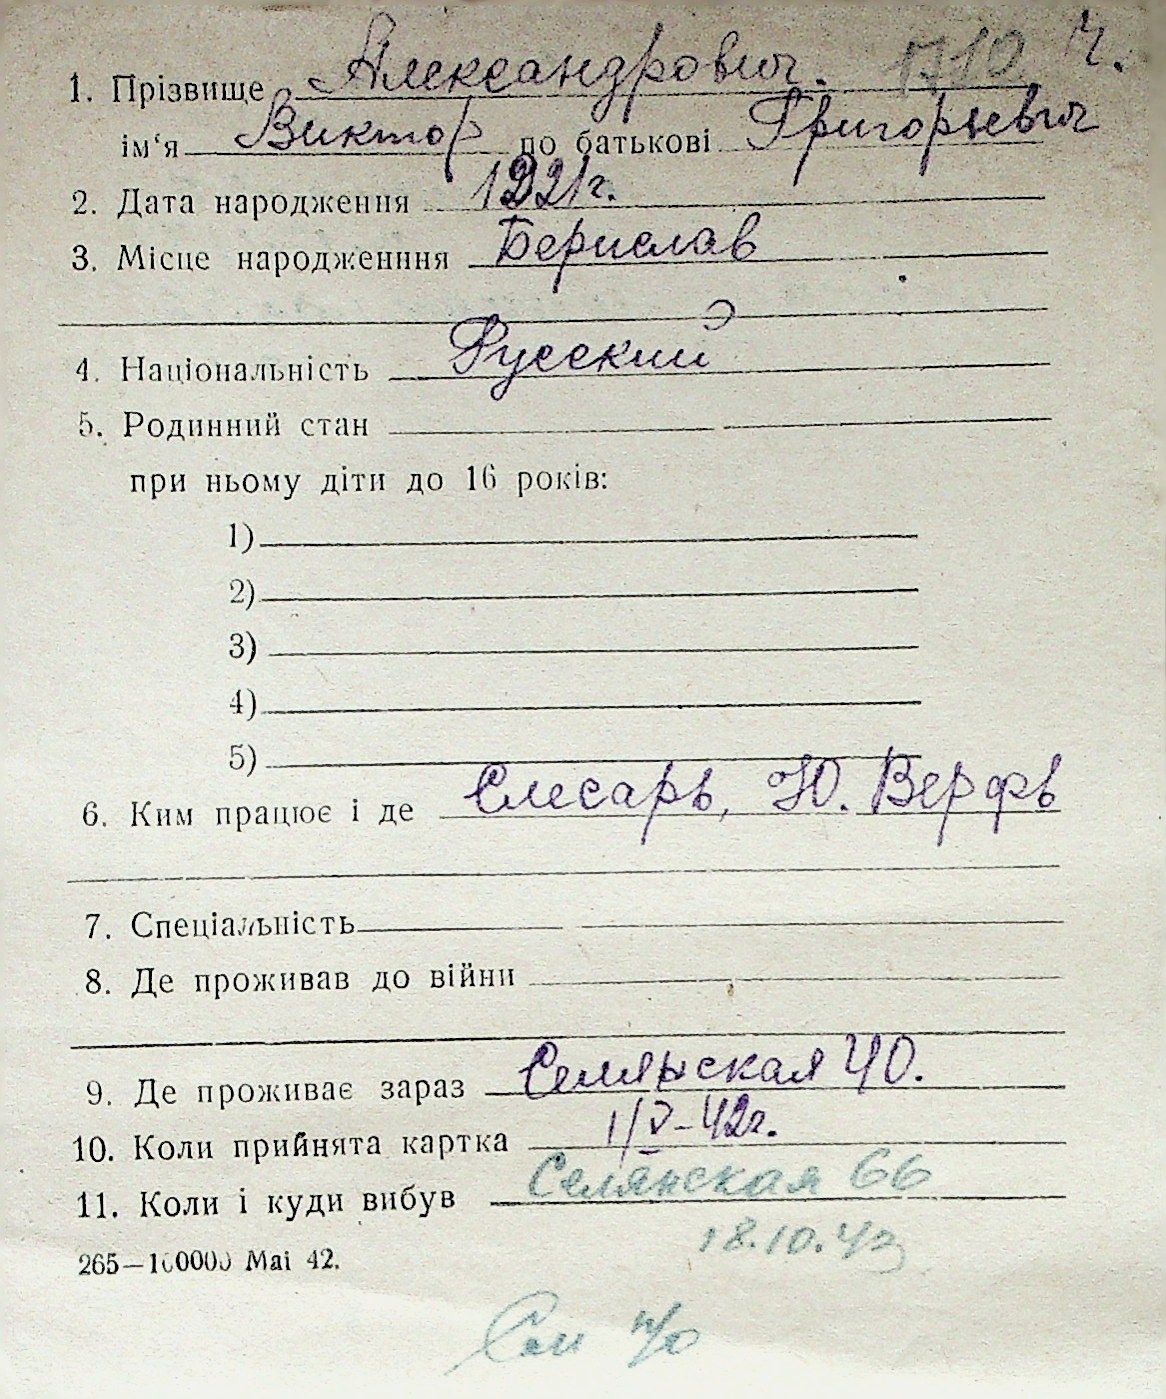 1. Прізвище Александрович. 1710 Ч.
ім‘я Виктор по батькові Григорьевич
2. Дата народження 1921г.
3. Місце народженння Берислав
4. Національність Русский
5. Родинний стан
при ньому діти до 16 років:
1)
2)
3)
4)
5)
6. Ким працює і де Слесарь, Ю. Верфь
7. Спеціальність
8. Де проживав до війни
9. Де проживає зараз Селянская 40.
10. Коли прийнята картка 1/V-42г.
11. Коли і куди вибув Селянская 66
18.10.42
265—100000 Mai 42.